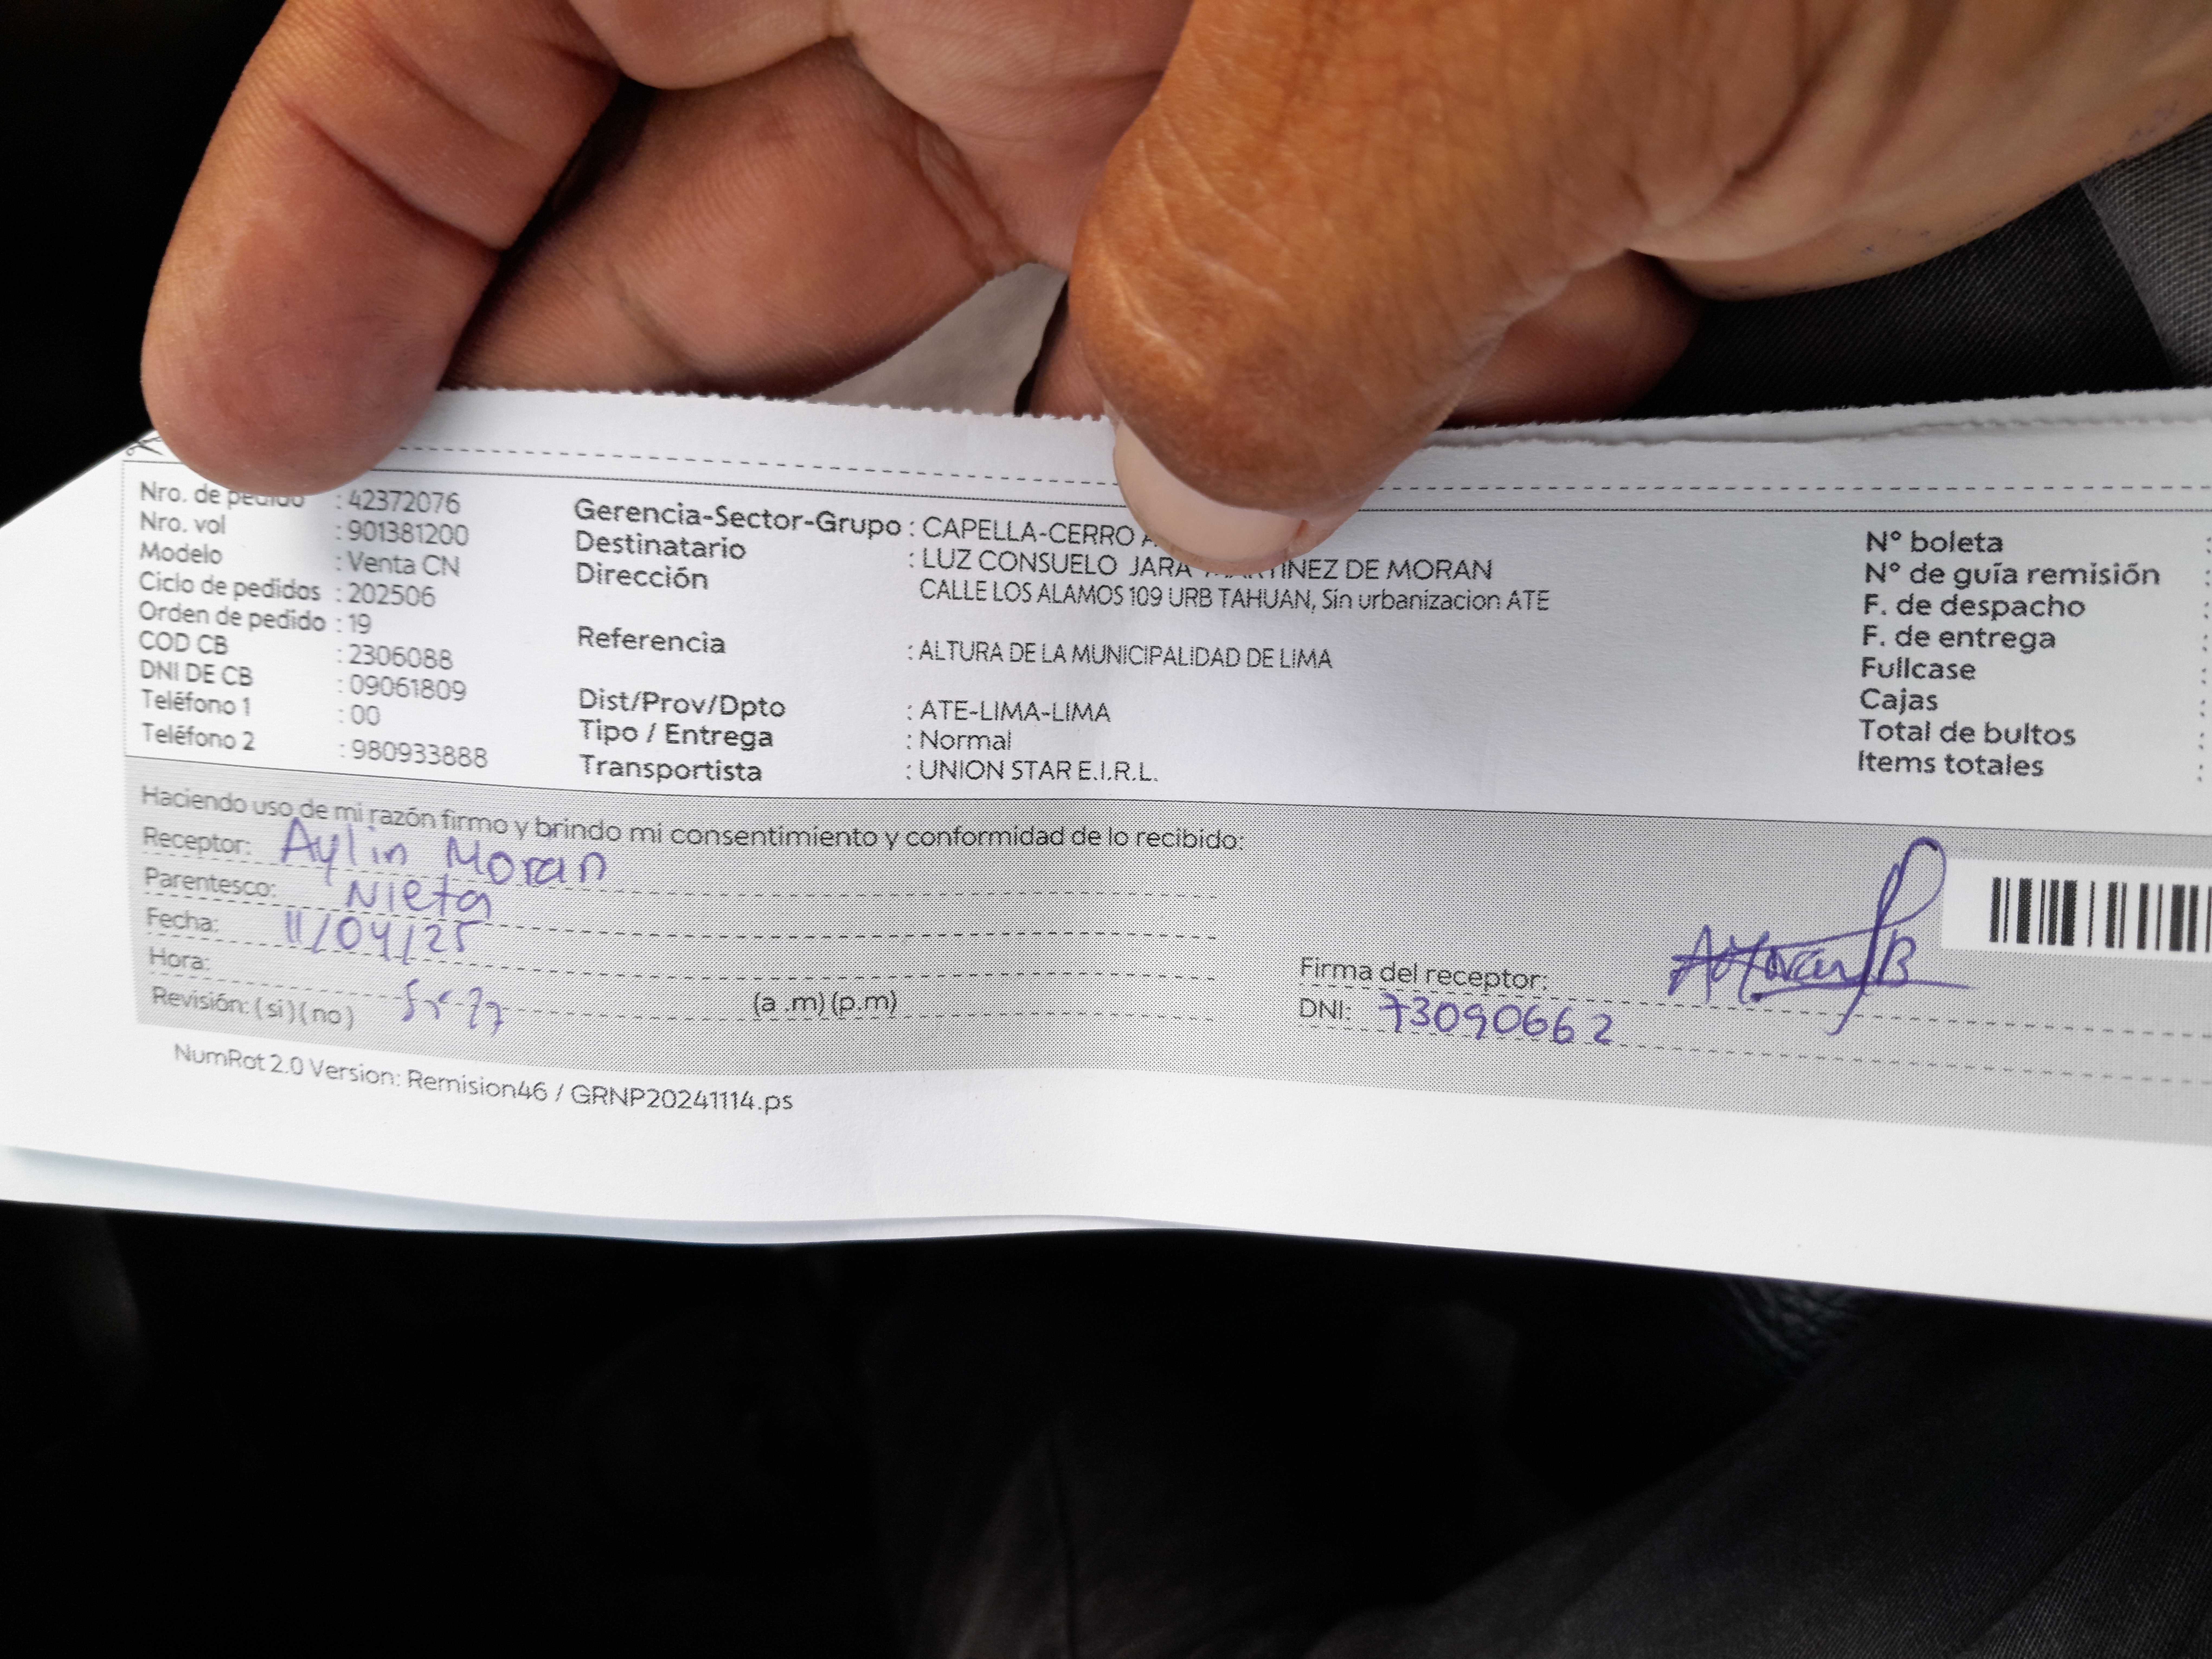 Nro. de pedido : 42372076
Nro. vol : 901381200
Modelo : Venta CN
Ciclo de pedidos : 202506
Orden de pedido : 19
COD CB : 2306088
DNI DE CB : 09061809
Teléfono 1 : 00
Teléfono 2 : 980933888
Gerencia-Sector-Grupo : CAPELLA-CERRO
Destinatario : LUZ CONSUELO JARA MARTINEZ DE MORAN
Dirección CALLE LOS ALAMOS 109 URB TAHUAN, Sin urbanizacion ATE
Referencia : ALTURA DE LA MUNICIPALIDAD DE LIMA
Dist/Prov/Dpto : ATE-LIMA-LIMA
Tipo / Entrega : Normal
Transportista : UNION STAR E.I.R.L.
N° boleta :
N° de guía remisión :
F. de despacho :
F. de entrega :
Fullcase :
Cajas :
Total de bultos :
Items totales :
Haciendo uso de mi razón firmo y brindo mi consentimiento y conformidad de lo recibido:
Receptor: Aylin Moran
Parentesco: Nieta
Fecha: 11/04/25
Hora: (a .m) (p.m)
Revisión: (si) (no)
Firma del receptor:
DNI: 73090662
NumRot 2.0 Version: Remision46 / GRNP20241114.ps